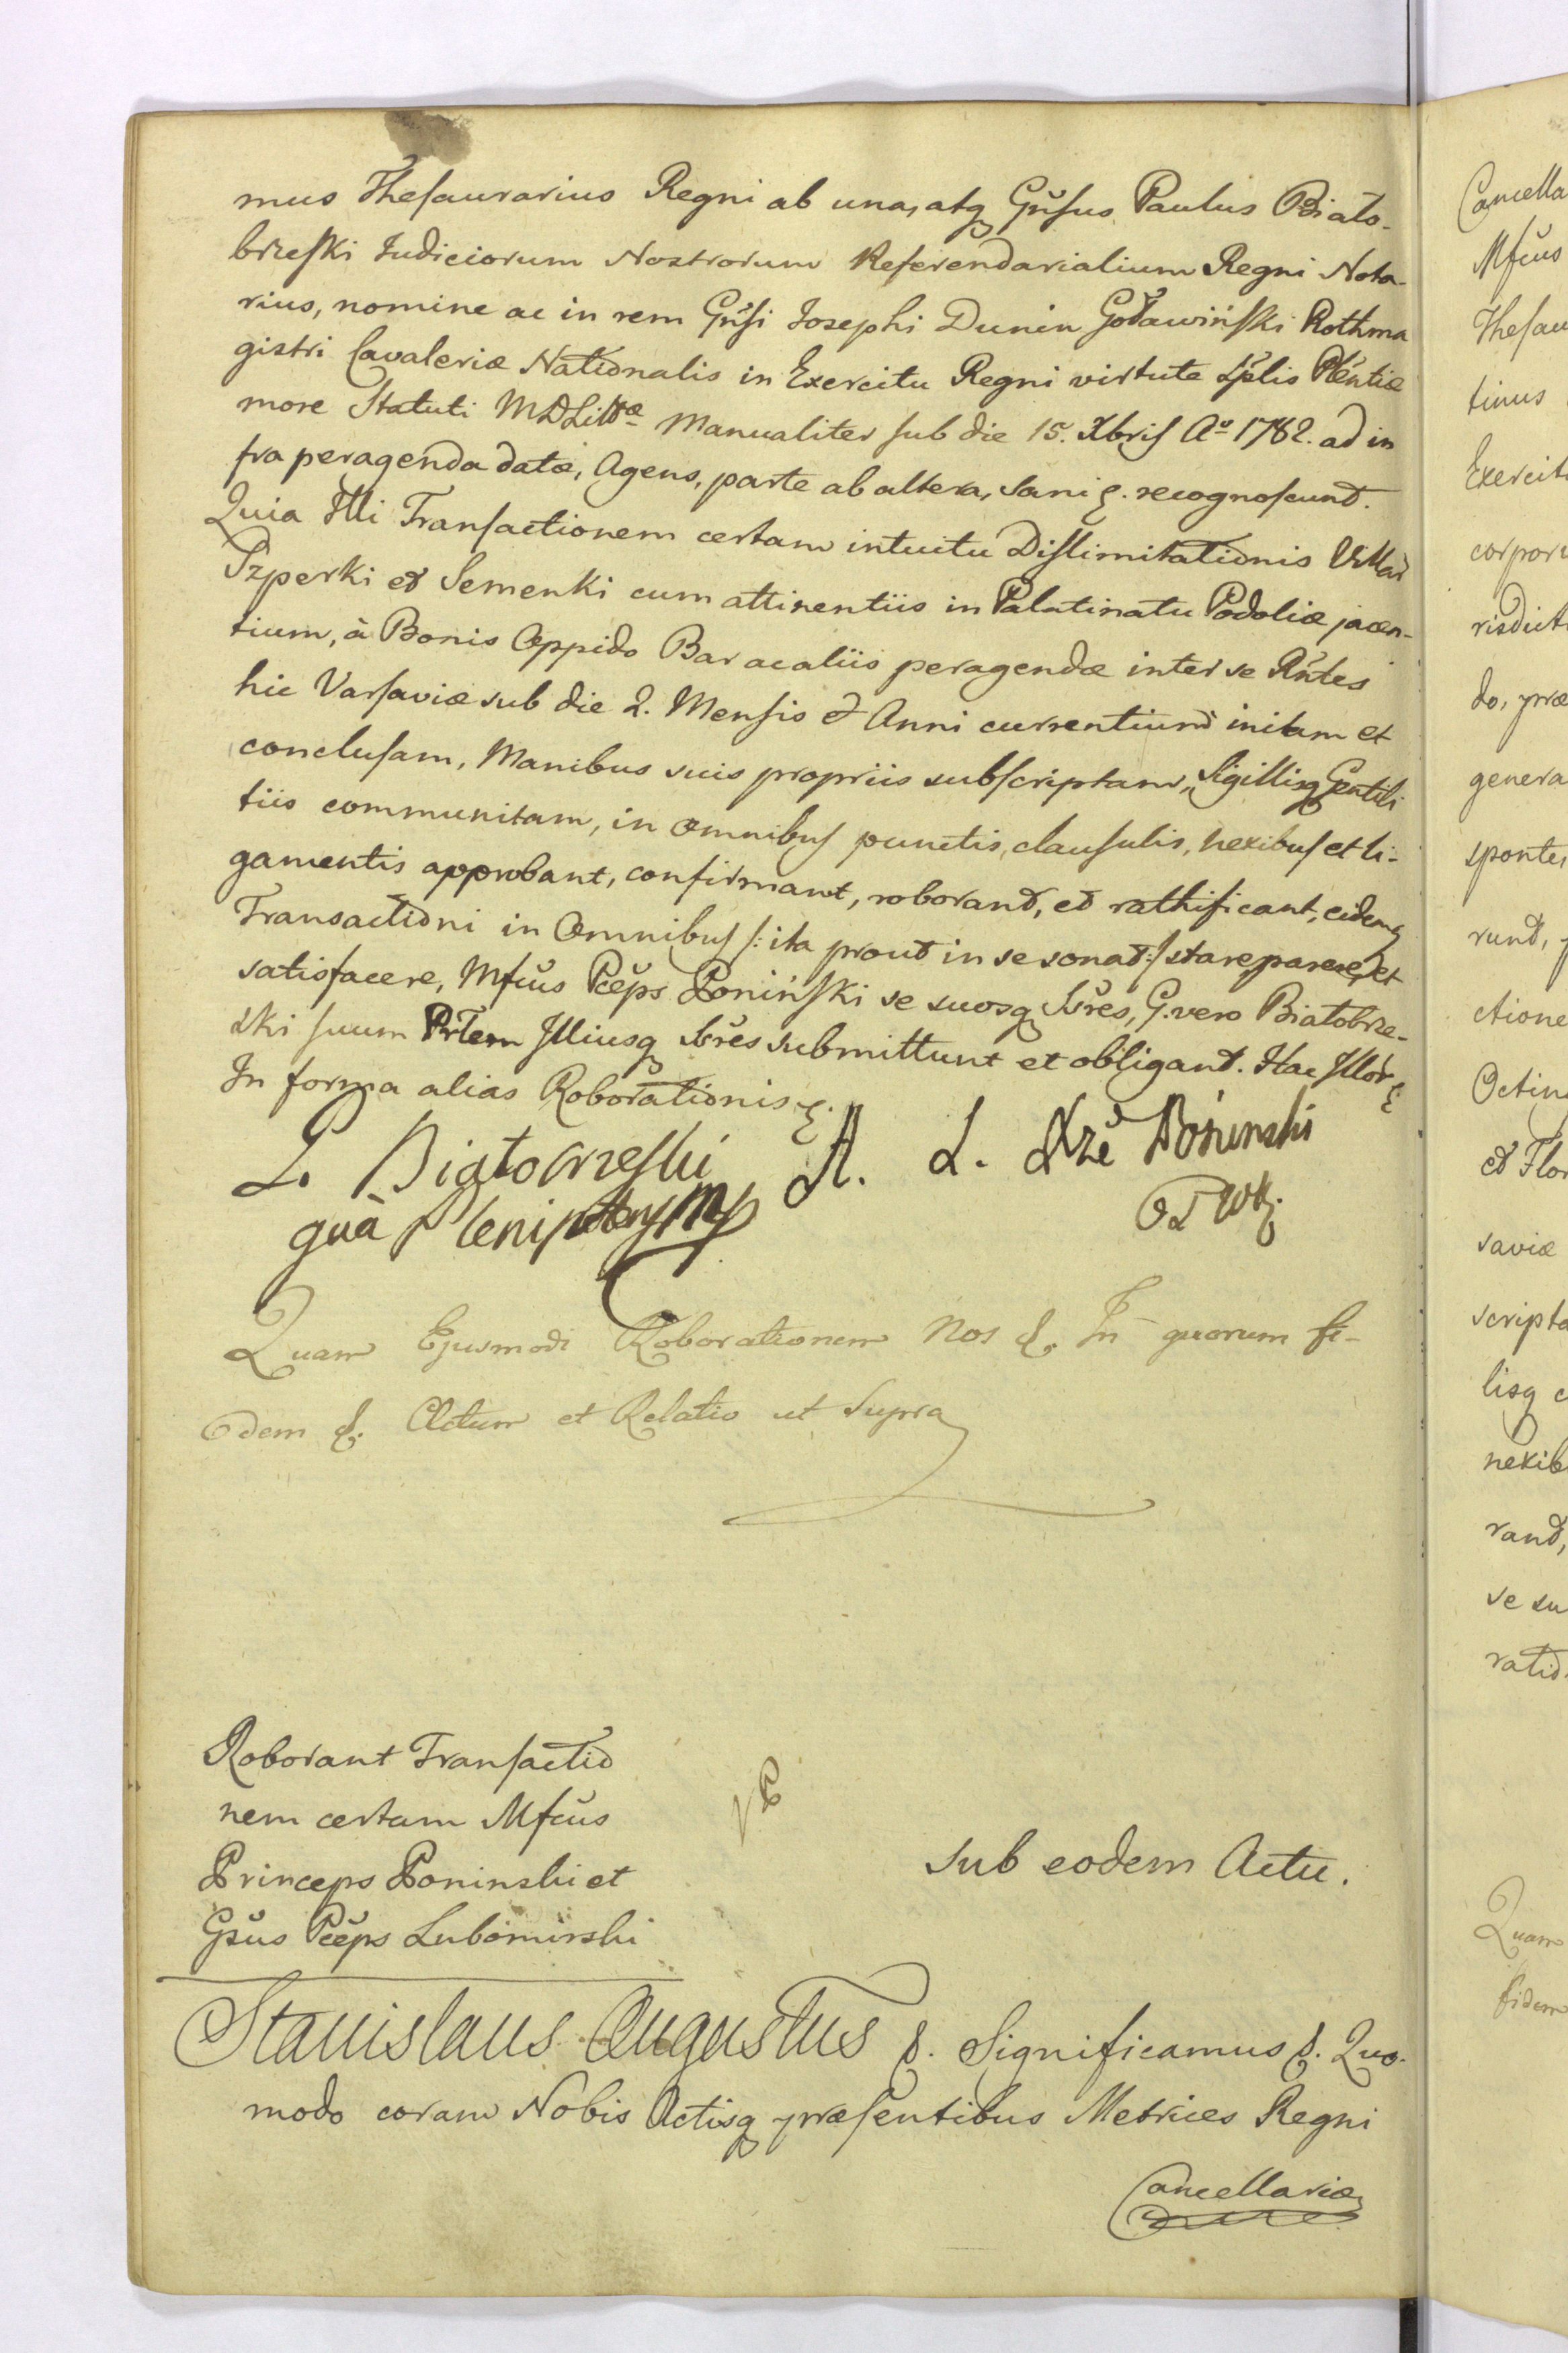 mus Thesaurarius Regni ab una, atq Gn̆sus Paulus Biało-
brzeski Iudiciorum Nostrorum Referendarialium Regni Nota-
rius, nomine ac in rem Gn̆si Josephi Dunin Goławiński Rothma
gistri Cavaleriæ Nationalis in Exercitu Regni virtute sp̆lis Plĕntiæ
more Statuti Manualiter sub die 15. Xbris Aº 1782. ad in
fra peragenda datæ, Agens, parte ab altera, sani &. recognoscunt.
Quia Illi Transactionem certam intuitu Dislimitationis Villar̃
Szperki et Semenki cum attinentiis in Palatinatu Podoliæ jacen-
tium, à Bonis Oppido Bar acaliis peragendæ inter se Rn̆tes
hic Varsaviæ sub die 2. Mensis & Anni currentium initam et
conclusam, Manibus suis propriis subscriptam, Sigillisq Gentili
tiis communitam, in omnibus punctis, clausulis, nexibus et li-
gamentis approbant, confirmant, roborant, et rathificant, eidemq
Transactioni in Omnibus /: ita prout in se sonat :/ stare parere, et
satisfacere, Mfcŭs Pcĕps Poniński se suosq Sc̆res, G. vero Białobrze-
ski suum Prtem Illiusq Sc̆res submittunt et obligant. Hac Illor &
In forma alias Roborationis &.
P. Białobrzeski A. L. Xże Poninski
quà Plenipotens mp
Quam Ejusmodi Roborationem Nos &. In quorum fi-
dem &. Actum et Relatio ut Supra
Roborant Transactio
nem certam Mfcŭs
Princeps Poninski et
Gsŭs Pcĕps Lubomirski
Sub eodem Actu.
Stanislaus Augustus &. Significamus &. Quo-
modo coram Nobis Actisq præsentibus Metrices Regni
Cancellariæ
Cancella
Mfcŭs
Thesau
tinus
Exercit
corpor
risdict
do, præ
genera
sponte,
runt,
ctione
Octin
et Flor
saviæ
scripta
lisq c
nexib
rant,
se su
ratio
Quam
fidem